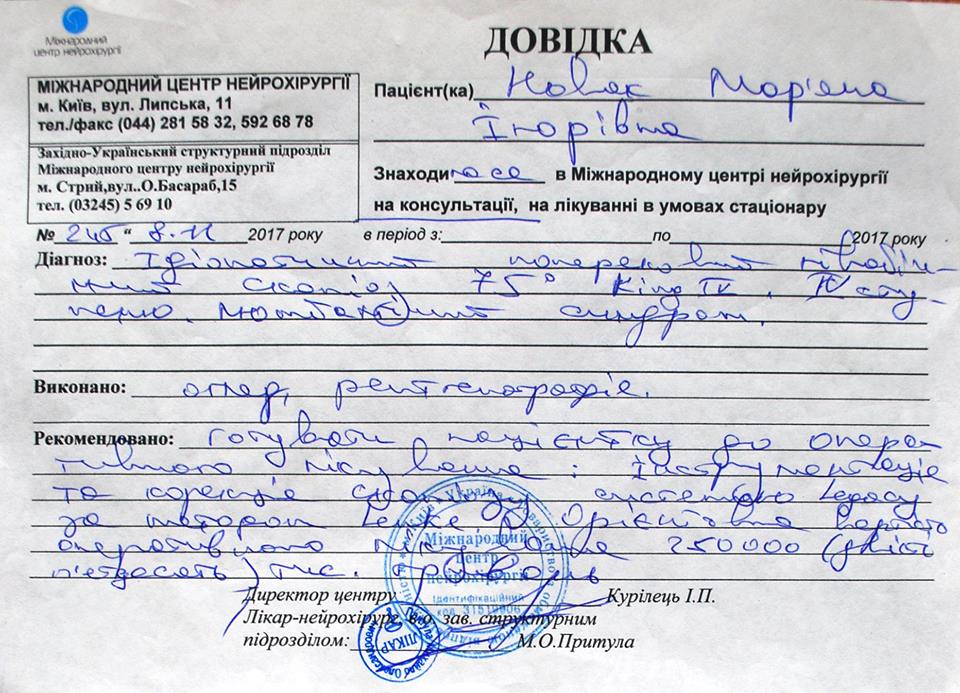 Міжнародний
центр нейрохірургії
ДОВІДКА
МІЖНАРОДНИЙ ЦЕНТР НЕЙРОХІРУРГІЇ
м. Київ, вул. Липська, 11
тел./факс (044) 281 58 32, 592 68 78
Західно-Український структурний підрозділ
Міжнародного центру нейрохірургії
м. Стрий,вул..О.Басараб,15
тел. (03245) 5 69 10
Пацієнт(ка) Новак Мар'яна
Ігорівна
Знаходилася в Міжнародному центрі нейрохірургії
на консультації, на лікуванні в умовах стаціонару
№ 245 " 8.11 2017 року в період з: по 2017 року
Діагноз: Ідіопатичний поперековий
сколіоз 75° King IV, IV сту-
пеню. синдром.
Виконано: огляд, рентгенографія.
Рекомендовано: готувати пацієнтку до опера-
тивного лікування: інструментація
та корекція сколіозу системою Legacy
за методом Lenke. Орієнтовна вартість
оперативного лікування 250000 (двісті
п'ятдесять) тис.
Директор центру Курілець І.П.
Лікар-нейрохірург, в.о. зав. структурним
підрозділом: М.О.Притула
Міжнародний
центр
нейрохірургії
Ідентифікаційний
код 31519906
ЛІКАР